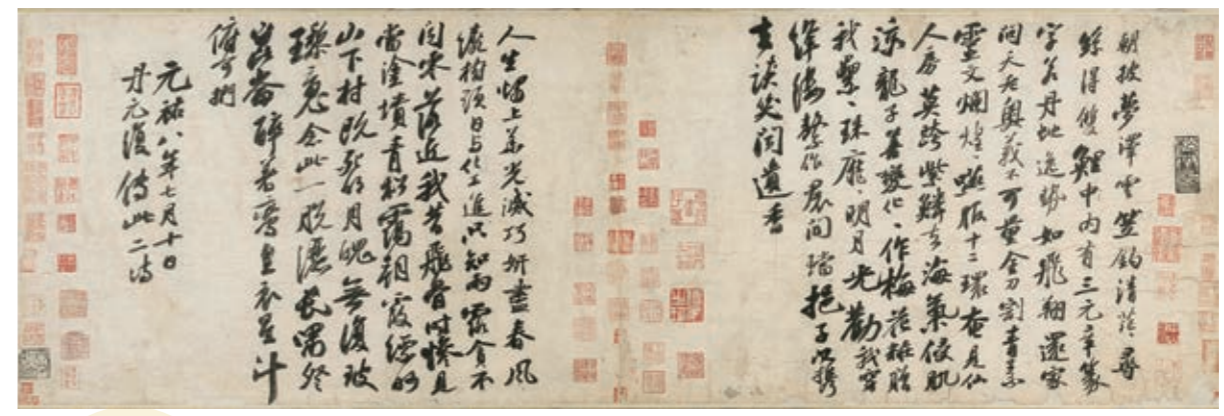 朝披夢澤雲笠釣清茫茫尋
絲得雙鯉中內有三元章篆
字若丹蛇逸勢如飛翔還家
問天老奧義不可量金刀割青素
靈文爛煌煌嚥服十二環奄見仙
人房莫跨紫鱗去海氣侵肌
涼龍子善變化化作梅花粧贈
我纍纍珠靡靡明月光勸我穿
絳縷繫作裙間璫挹子以攜
去談笑聞遺香
人生燭上華光滅巧妍盡春風
繞樹頭日與化工進只知雨露貪不
聞零落近我昔飛骨時慘見
當塗墳青松靄朝霞縹緲
山下村既死明月魄無復玻
璃魂念此一脫灑長嘯登
崑崙醉着鸞皇衣星斗
俯可捫
元祐八年七月十日
丹元復傳此二詩